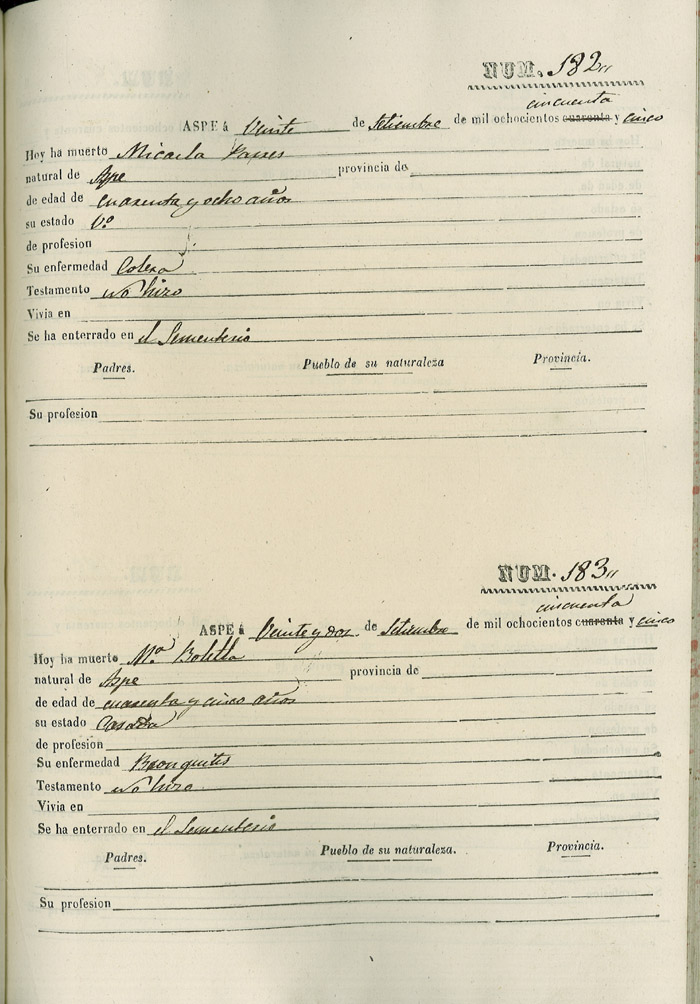 NUM. 182„
cincuenta
ASPE á Veinte de Setiembre de mil ochocientos cuarenta y cinco
Hoy ha muerto Micaela
natural de Aspe provincia de
de edad de cuarenta y ocho años
su estado V.º
de profesion
Su enfermedad Colera
Testamento no hizo
Vivia en
Se ha enterrado en el Sementerio
Padres. Pueblo de su naturaleza Provincia.
Su profesion
NUM. 183„
cincuenta
ASPE á Veinte y dos de Setiembre de mil ochocientos cuarenta y cinco
Hoy ha muerto M.ª Botella
natural de Aspe provincia de
de edad de cuarenta y cinco años
su estado Casada
de profesion
Su enfermedad Bronquitis
Testamento no hizo
Vivia en
Se ha enterrado en el Sementerio
Padres. Pueblo de su naturaleza. Provincia.
Su profesion